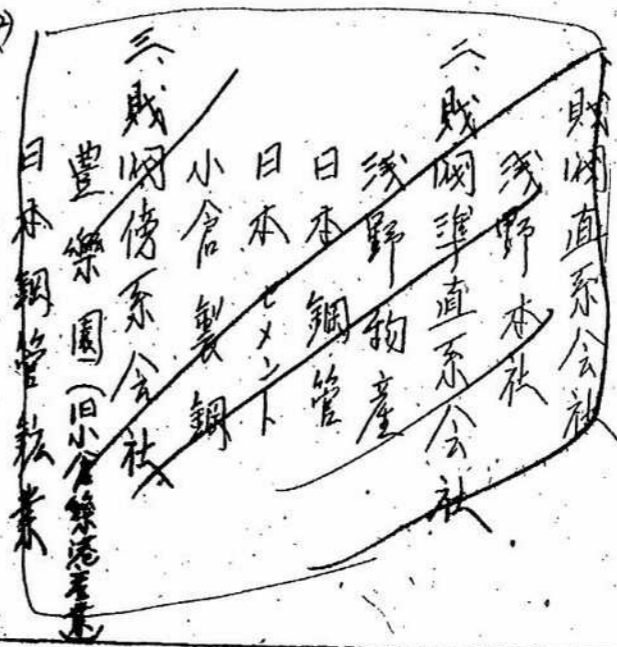 財閥直系会社
浅野本社
二、財閥準直系会社
浅野物産
日本鋼管
日本セメント
小倉製鋼
三、財閥傍系会社
豊樂園(旧小倉築港産業)
日本鋼管鉱業